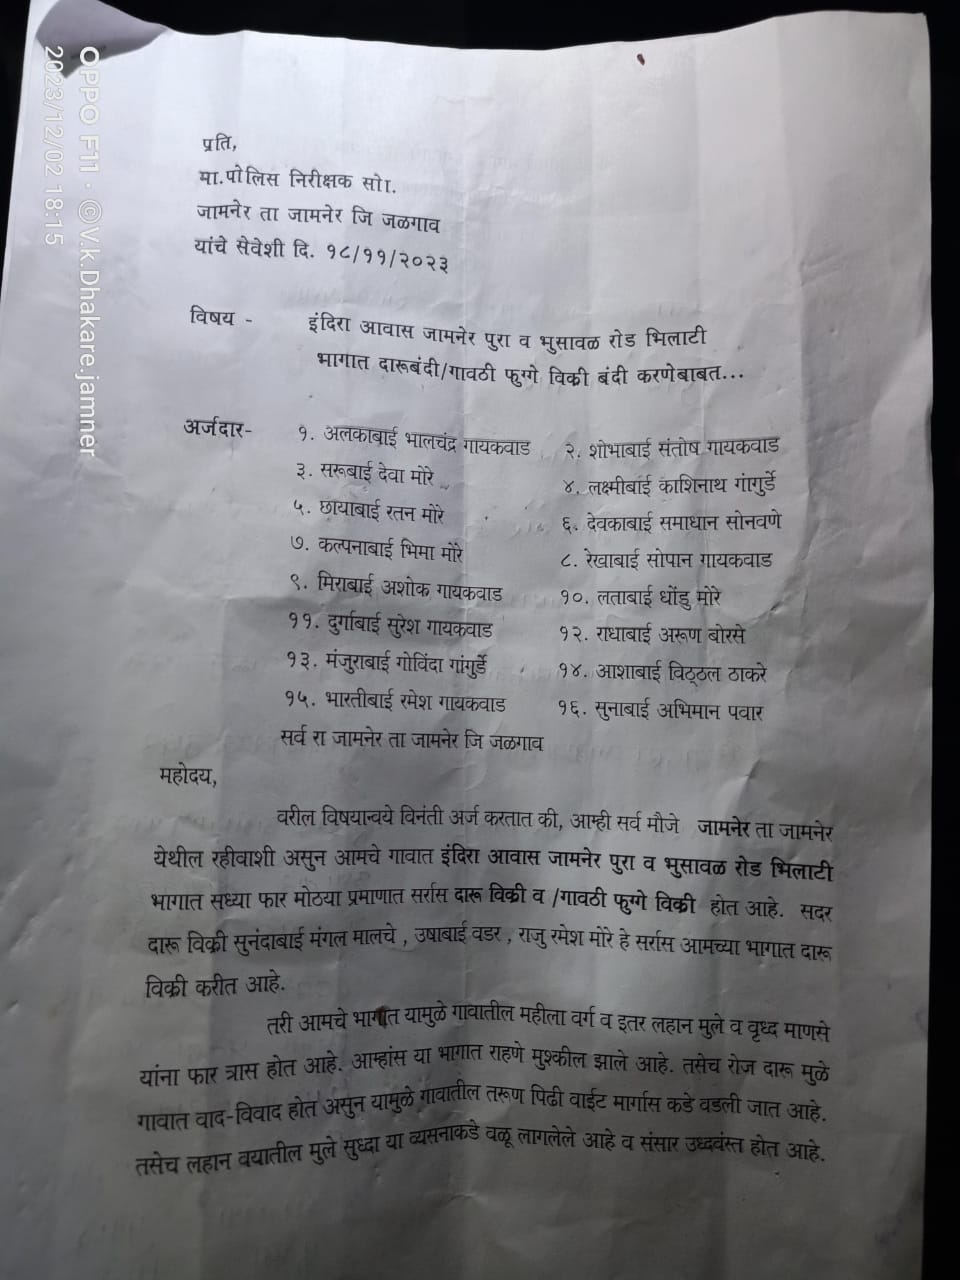 OPPO F11 · ©V.k.Dhakare.jamner
2023/12/02 18:15
प्रति,
मा.पोलिस निरीक्षक सोा.
जामनेर ता जामनेर जि जळगाव
यांचे सेवेशी दि. १८/११/२०२३
विषय - इंदिरा आवास जामनेर पुरा व भुसावळ रोड भिलाटी
भागात दारूबंदी/गावठी फुग्गे विक्री बंदी करणेबाबत...
अर्जदार- १. अलकाबाई भालचंद्र गायकवाड २. शोभाबाई संतोष गायकवाड
३. सरूबाई देवा मोरे ४. लक्ष्मीबाई काशिनाथ गांगुर्डे
५. छायाबाई रतन मोरे ६. देवकाबाई समाधान सोनवणे
७. कल्पनाबाई भिमा मोरे ८. रेखाबाई सोपान गायकवाड
९. मिराबाई अशोक गायकवाड १०. लताबाई धोंडु मोरे
११. दुर्गाबाई सुरेश गायकवाड १२. राधाबाई अरूण बोरसे
१३. मंजुराबाई गोविंदा गांगुर्डे १४. आशाबाई विठ्ठल ठाकरे
१५. भारतीबाई रमेश गायकवाड १६. सुनाबाई अभिमान पवार
सर्व रा जामनेर ता जामनेर जि जळगाव
महोदय,
वरील विषयान्वये विनंती अर्ज करतात की, आम्ही सर्व मौजे जामनेर ता जामनेर
येथील रहीवाशी असुन आमचे गावात इंदिरा आवास जामनेर पुरा व भुसावळ रोड भिलाटी
भागात सध्या फार मोठया प्रमाणात सर्रास दारू विक्री व /गावठी फुग्गे विक्री होत आहे. सदर
दारू विक्री सुनंदाबाई मंगल मालचे , उषाबाई वडर , राजु रमेश मोरे हे सर्रास आमच्या भागात दारू
विक्री करीत आहे.
तरी आमचे भागात यामुळे गावातील महीला वर्ग व इतर लहान मुले व वृध्द माणसे
यांना फार त्रास होत आहे. आम्हांस या भागात राहणे मुश्कील झाले आहे. तसेच रोज दारू मुळे
गावात वाद-विवाद होत असुन यामुळे गावातील तरूण पिढी वाईट मार्गास कडे वडली जात आहे.
तसेच लहान वयातील मुले सुध्दा या व्यसनाकडे वळू लागलेले आहे व संसार उध्दवंस्त होत आहे.